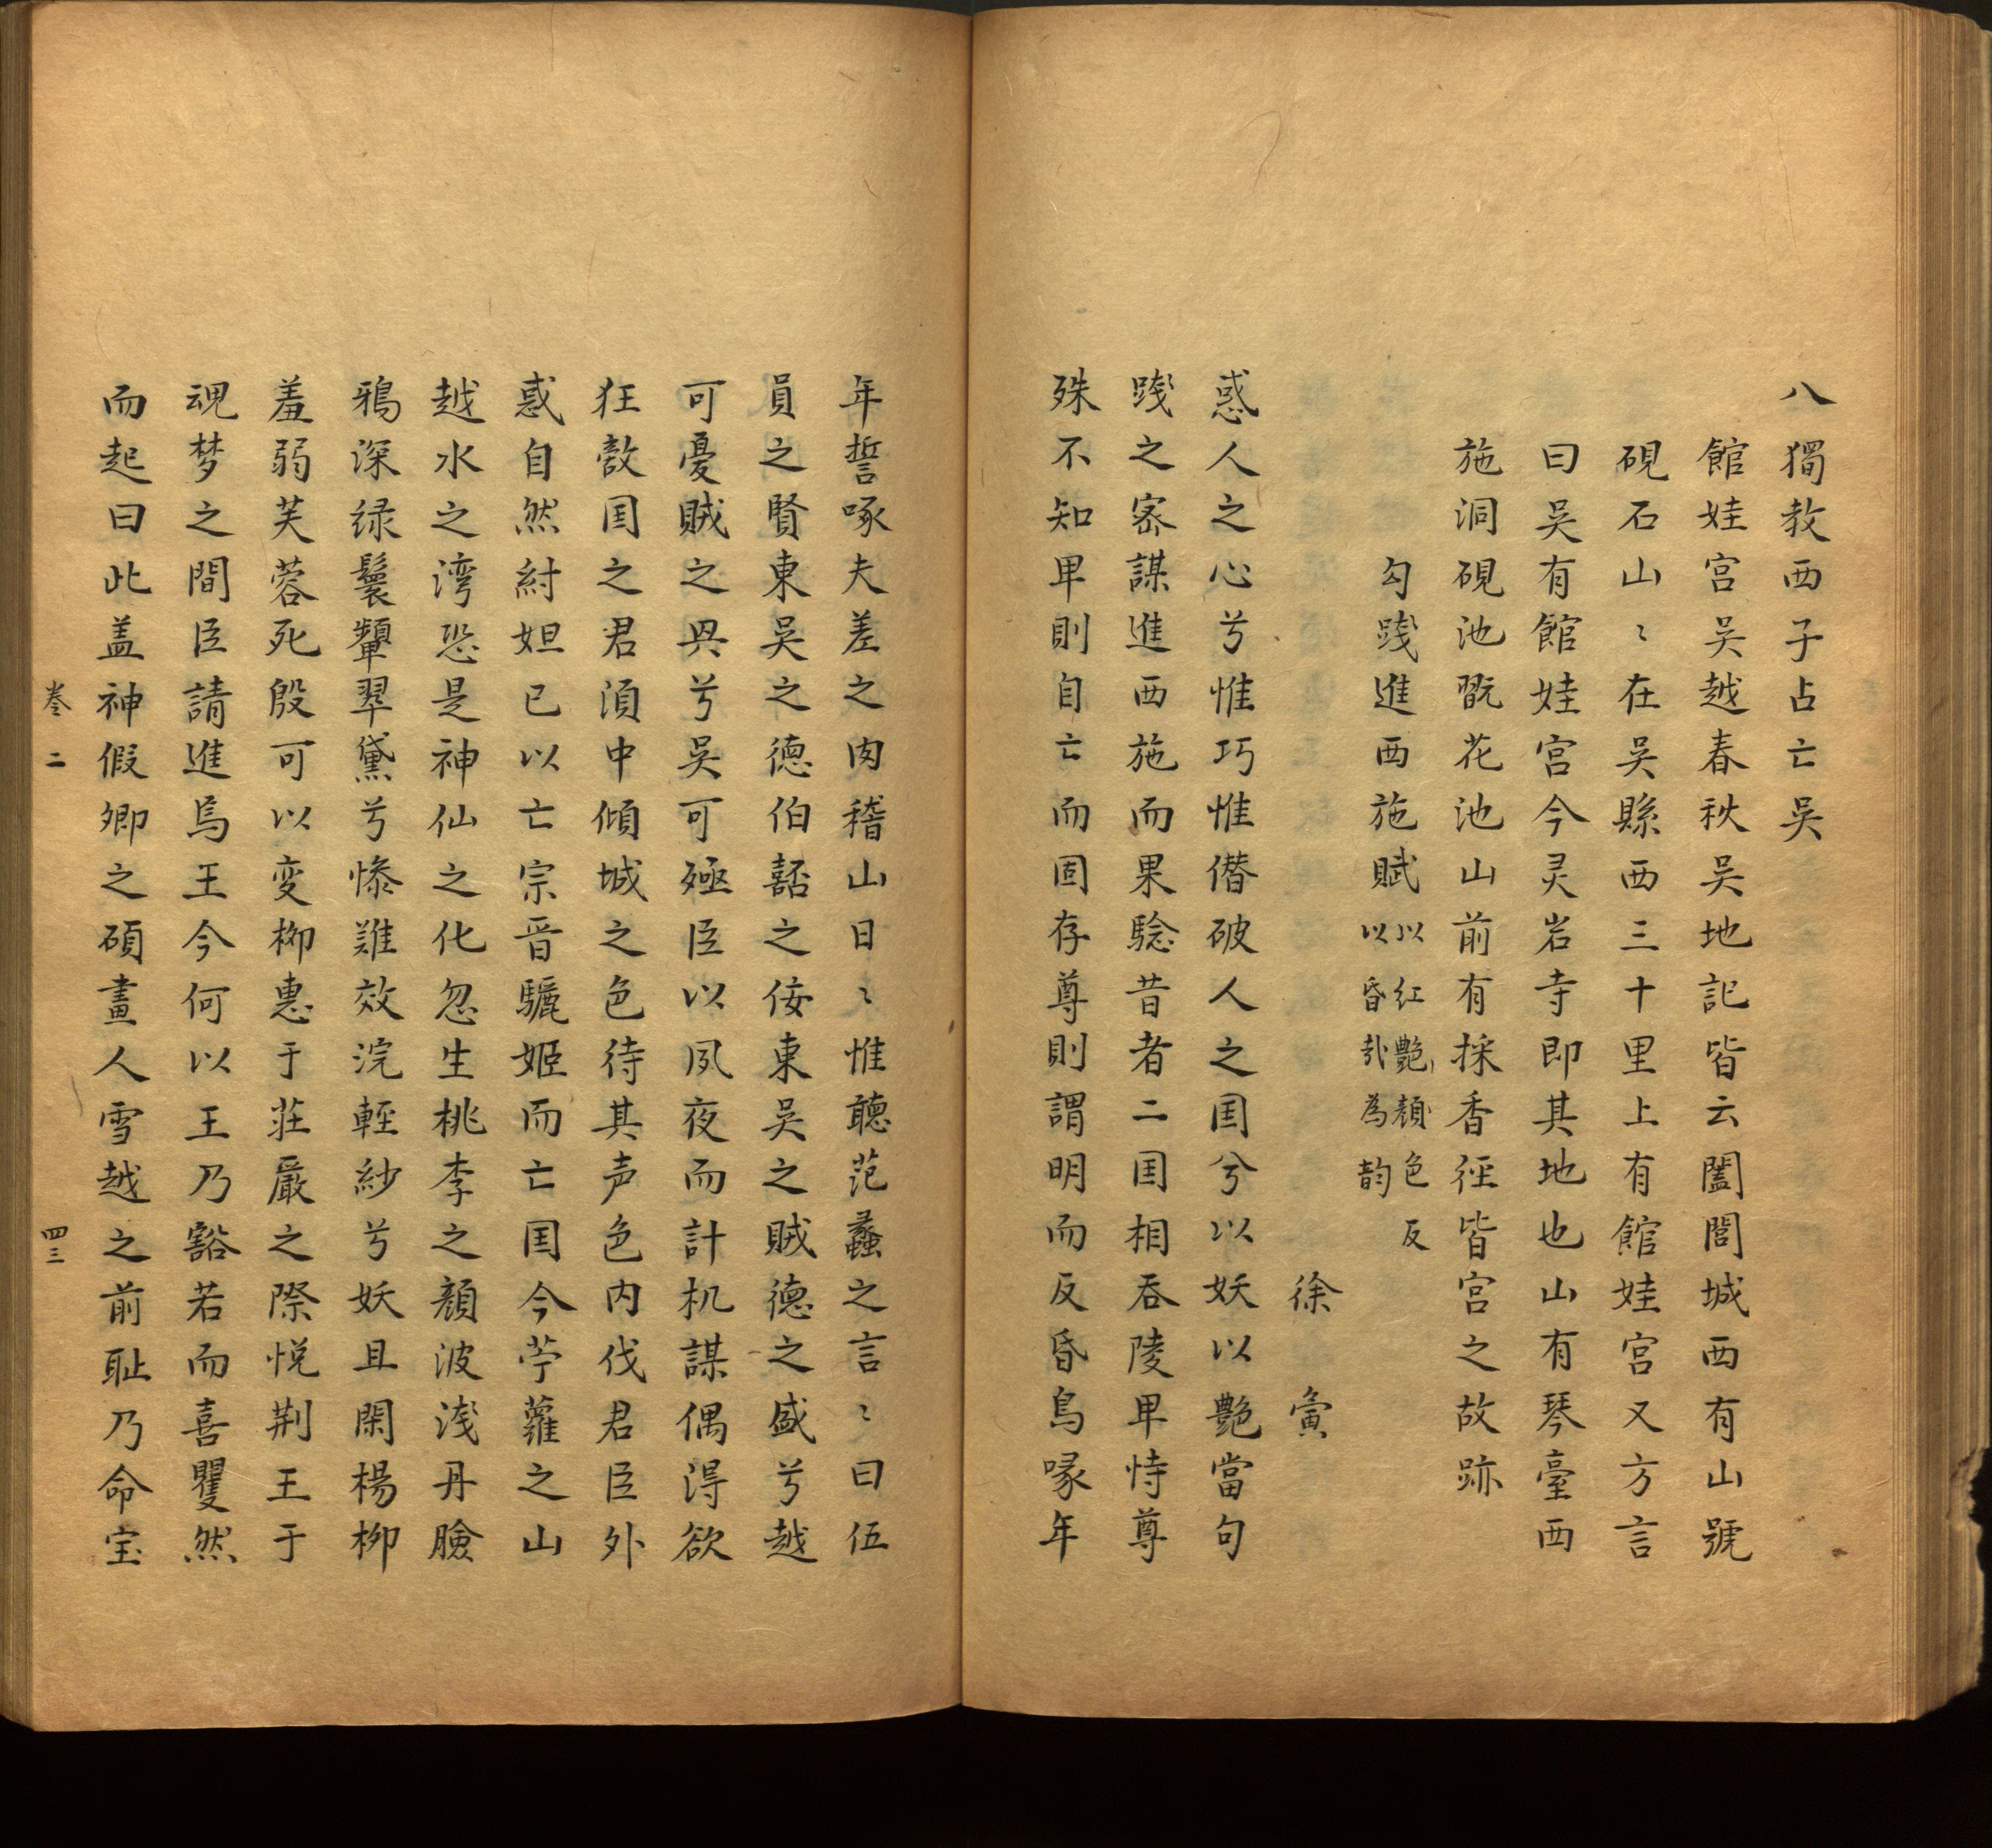 八獨教西子占亡吳
館娃宫吴越春秋吴地記皆云闔閭城西有山號
硯石山〻在吴縣西三十里上有館娃宫又方言
曰吴有館娃宫今灵岩寺即其地也山有琴臺西
施洞硯池翫花池山前有採香徑皆宫之故跡
勾踐進西施賦以紅艶顔色反
以昏卦為韵
徐寅
惑人之心兮惟巧惟僭破人之国兮以妖以艶當句
踐之宻謀進西施而果騐昔者二国相吞陵卑恃尊
殊不知卑則自亡而固存尊則謂明而反昏鳥喙年
年誓啄夫差之肉稽山日〻惟聼范蠡之言〻曰伍
員之賢東吴之德伯嚭之佞東吴之賊德之盛兮越
可憂賊之興兮吴可殛臣以夙夜而計机謀偶得欲
狂敵国之君須中傾城之色待其声色内伐君臣外
惑自然紂妲已以亡宗晋驪姬而亡国今苧蘿之山
越水之湾恐是神仙之化忽生桃李之顔波淺丹臉
鴉深緑鬟顰翠黛兮慘難效浣輕紗兮妖且閑楊柳
羞弱芙蓉死殷可以变柳惠于荘嚴之際悦荆王于
魂梦之間臣請進焉王今何以王乃豁若而喜瞿然
而起曰此盖神假卿之碩畫人雪越之前耻乃命宝
卷二
四三